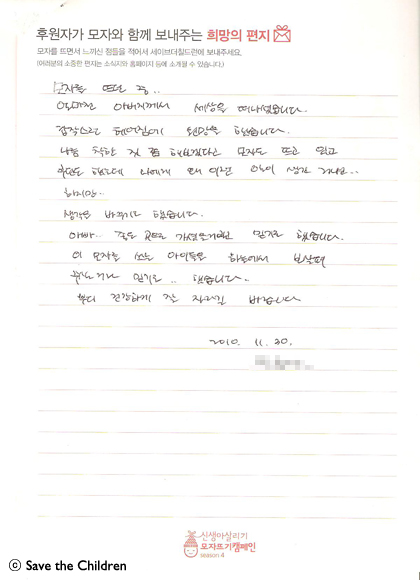 후원자가 모자와 함께 보내주는 희망의 편지
모자를 뜨면서 느끼신 점들을 적어서 세이브더칠드런에 보내주세요.
(여러분의 소중한 편지는 소식지와 홈페이지 등에 소개될 수 있습니다.)
모자를 뜨던 중..
아버지께서 세상을 떠나셨습니다.
갑작스런 헤어짐에 원망을 했습니다.
나름 착한 일 좀 해보겠다고 모자도 뜨고 있고
했는데 나에게 왜 이런 일이 생긴 거냐고..
하지만..
생각을 바꾸기로 했습니다.
아빠.. 좋은 곳으로 가셨을거라 믿기로 했습니다.
이 모자를 쓰는 아이들을 하늘에서 보살펴
주실거라 믿기로.. 했습니다.
부디 건강하게 잘 자라길 바랍니다
2010. 11. 30.
신생아살리기
모자뜨기캠페인
season 4
ⓒ Save the Children